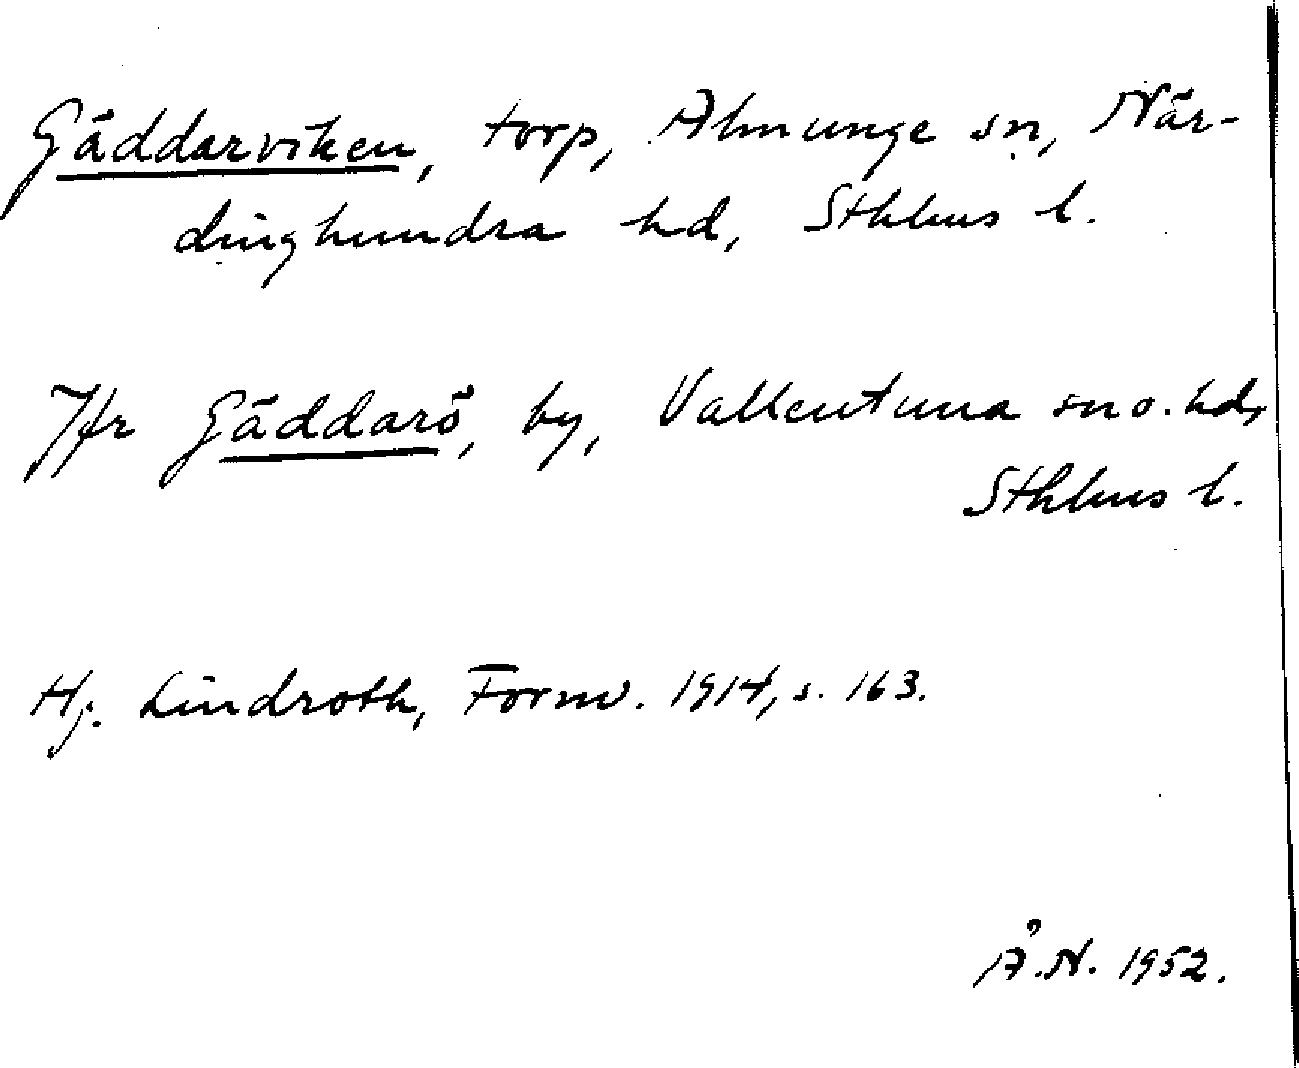 Gäddarviken, torp, Almunge sn, När-
dinghundra hd, Sthlms l.
Jfr Gäddarö, by, Vallentuna sn o. hd,
Sthlms l.
Hj. Lindroth, Fornv. 1914, s. 163.
Å.N. 1952.